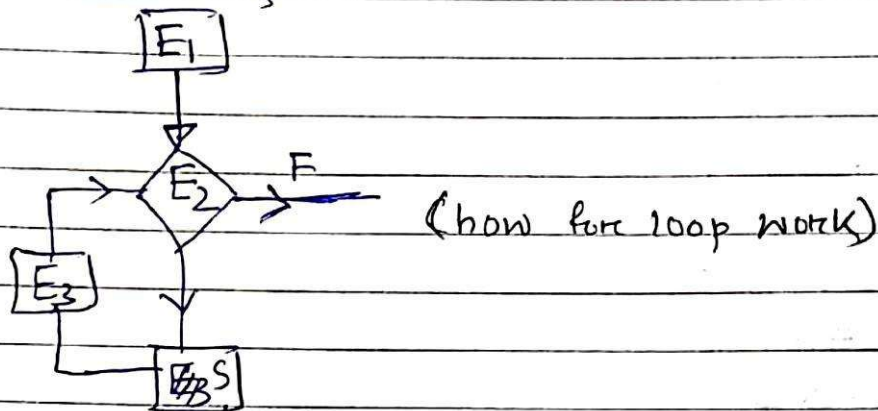 E1
E2
F
(how fore loop work)
E3
S